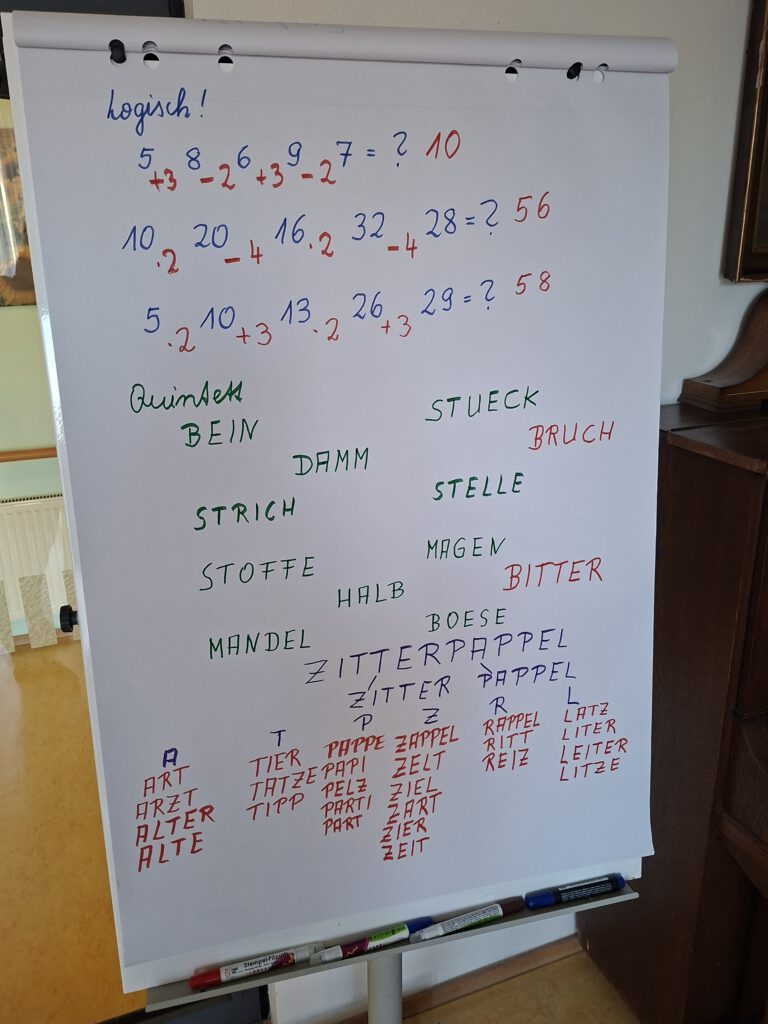 Logisch!
5 +3 8 -2 6 +3 9 -2 7 = ? 10
10 ·2 20 -4 16 ·2 32 -4 28 = ? 56
5 ·2 10 +3 13 ·2 26 +3 29 = ? 58
Quintett
STUECK
BEIN
BRUCH
DAMM
STELLE
STRICH
MAGEN
STOFFE
BITTER
HALB
BOESE
MANDEL
ZITTERPAPPEL
ZITTER PAPPEL
A T P Z R L
ART
ARZT
ALTER
ALTE
TIER
TATZE
TIPP
PAPPE
PAPI
PELZ
PARTI
PART
ZAPPEL
ZELT
ZIEL
ZART
ZIER
ZEIT
RAPPEL
RITT
REIZ
LATZ
LITER
LEITER
LITZE